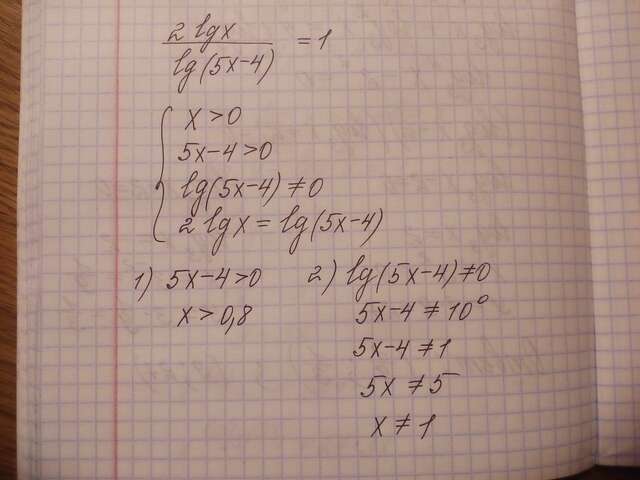 2 lg x / lg(5x-4) = 1
x > 0
5x-4 > 0
lg(5x-4) ≠ 0
2 lg x = lg(5x-4)
1) 5x-4 > 0
x > 0,8
2) lg(5x-4) ≠ 0
5x-4 ≠ 10⁰
5x-4 ≠ 1
5x ≠ 5
x ≠ 1